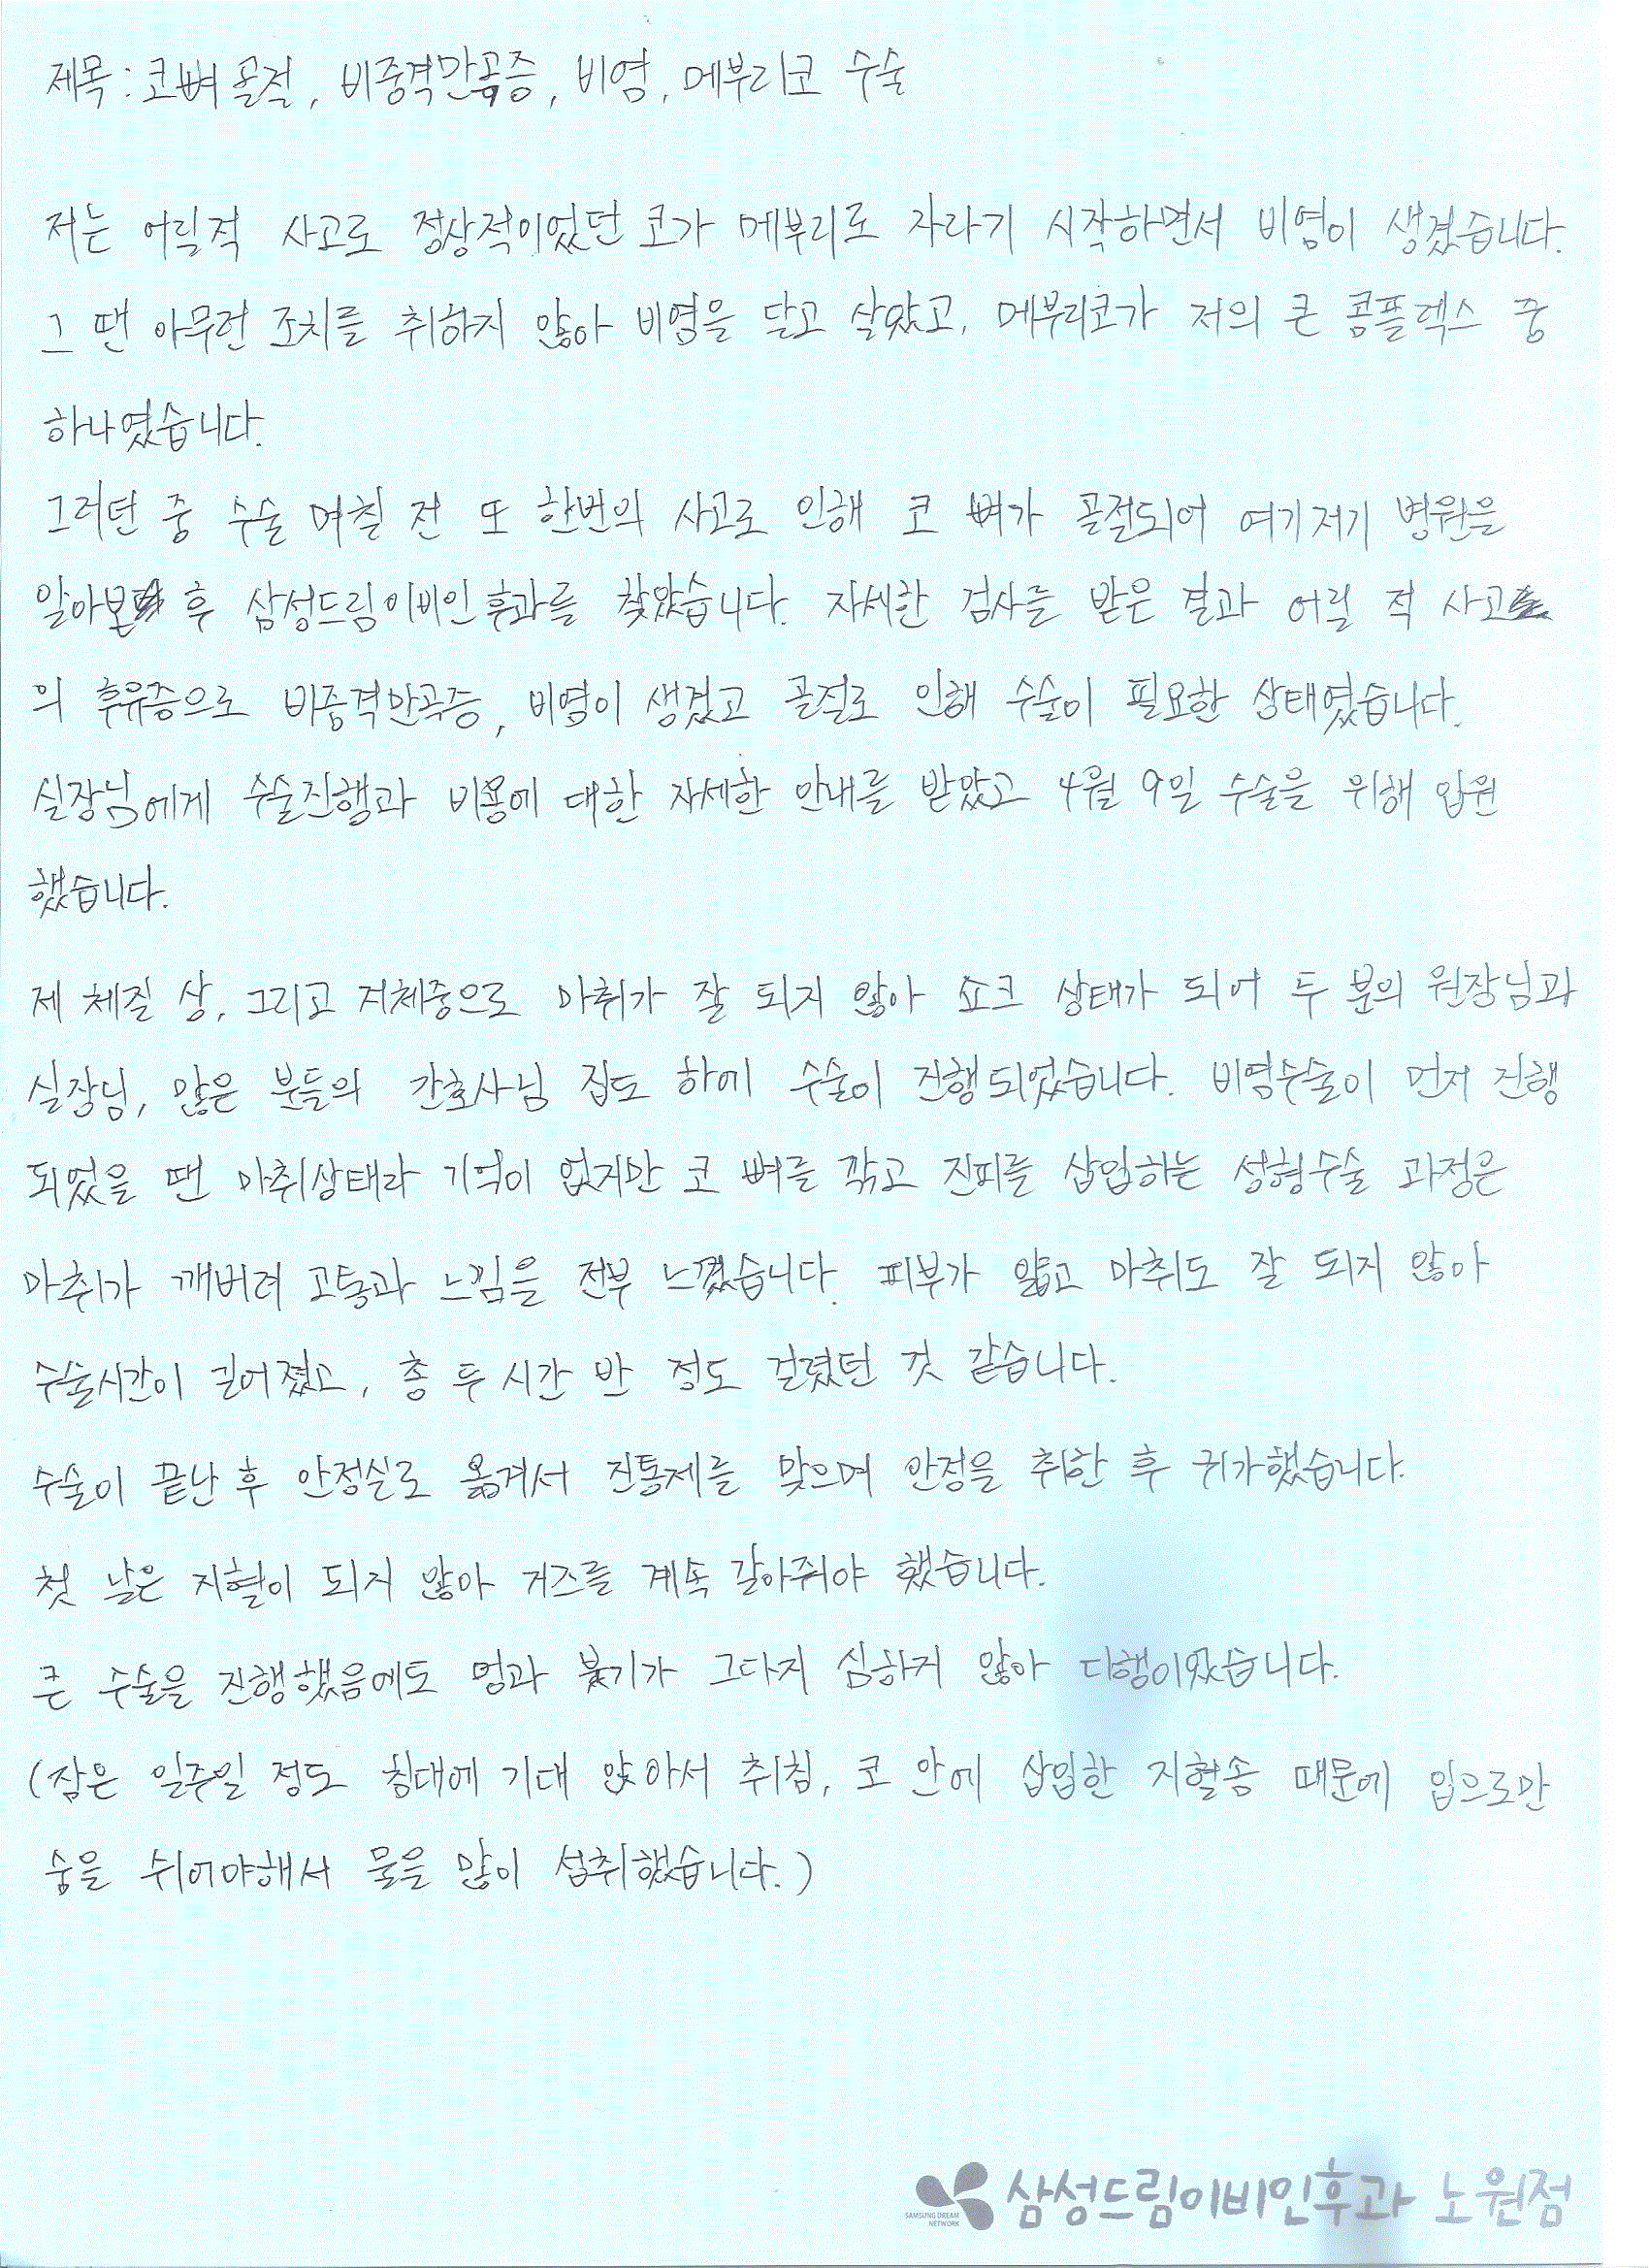 제목 : 코뼈 골절, 비중격만곡증, 비염, 메부리코 수술
저는 어릴적 사고로 정상적이었던 코가 메부리로 자라기 시작하면서 비염이 생겼습니다.
그 땐 아무런 조치를 취하지 않아 비염을 달고 살았고, 메부리코가 저의 큰 콤플렉스 중
하나였습니다.
그러던 중 수술 며칠 전 또 한번의 사고로 인해 코 뼈가 골절되어 여기저기 병원을
알아본 후 삼성드림이비인후과를 찾았습니다. 자세한 검사를 받은 결과 어릴 적 사고
의 후유증으로 비중격만곡증, 비염이 생겼고 골절로 인해 수술이 필요한 상태였습니다.
실장님에게 수술진행과 비용에 대한 자세한 안내를 받았고 4월 9일 수술을 위해 입원
했습니다.
제 체질 상, 그리고 저체중으로 마취가 잘 되지 않아 쇼크 상태가 되어 두 분의 원장님과
실장님, 많은 분들의 간호사님 집도 하에 수술이 진행되었습니다. 비염수술이 먼저 진행
되었을 땐 마취상태라 기억이 없지만 코 뼈를 깎고 진피를 삽입하는 성형수술 과정은
마취가 깨버려 고통과 느낌을 전부 느꼈습니다. 피부가 얇고 마취도 잘 되지 않아
수술시간이 길어졌고, 총 두 시간 반 정도 걸렸던 것 같습니다.
수술이 끝난 후 안정실로 옮겨서 진통제를 맞으며 안정을 취한 후 귀가했습니다.
첫 날은 지혈이 되지 않아 거즈를 계속 갈아줘야 했습니다.
큰 수술을 진행했음에도 멍과 붓기가 그다지 심하지 않아 다행이었습니다.
(잠은 일주일 정도 침대에 기대 앉아서 취침, 코 안에 삽입한 지혈솜 때문에 입으로만
숨을 쉬어야해서 물을 많이 섭취했습니다.)
SAMSUNG DREAM
NETWORK
삼성드림이비인후과 노원점